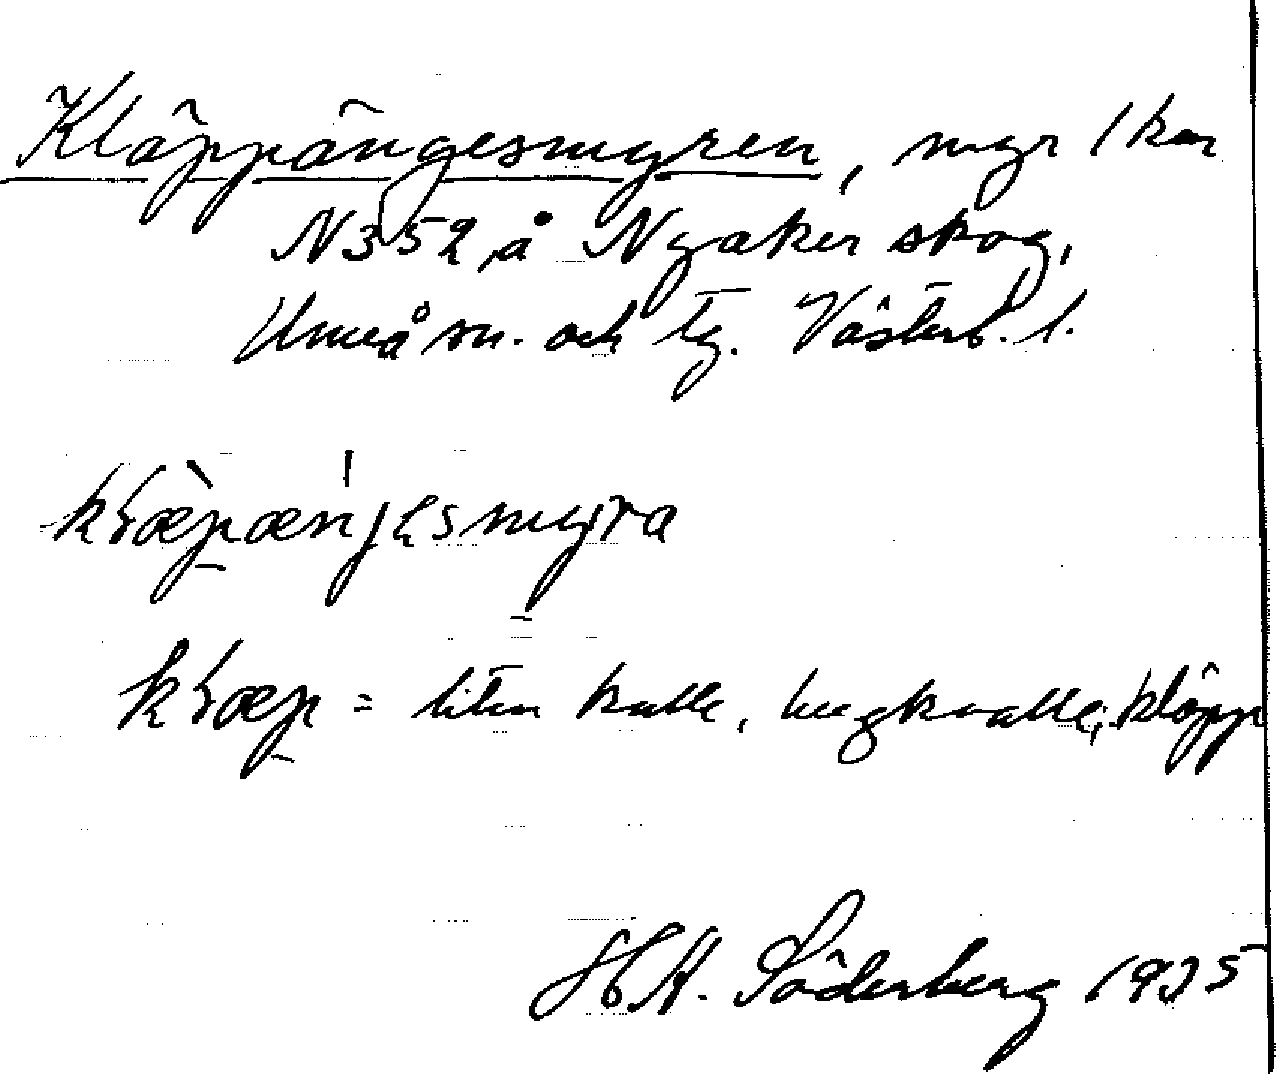 Kläppängesmyren, myr 1 km
N 352, å Nyåker skog,
Umeå sn. och tg. Västerb. l.
kɽæpæŋjesmyra
kɽæp = liten kulle, bergknalle, kläpp
H. Söderberg 1935